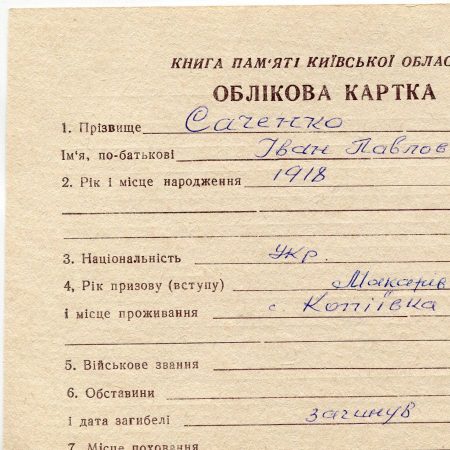 КНИГА ПАМ'ЯТІ КИЇВСЬКОЇ ОБЛАС
ОБЛІКОВА КАРТКА
1. Прізвище Саченко
Ім'я, по-батькові Іван Павлов
2. Рік і місце народження 1918
3. Національність Укр.
4, Рік призову (вступу) Макарів
і місце проживання с. Копіївка
5. Військове звання
6. Обставини
і дата загибелі загинув
7. Місце поховання